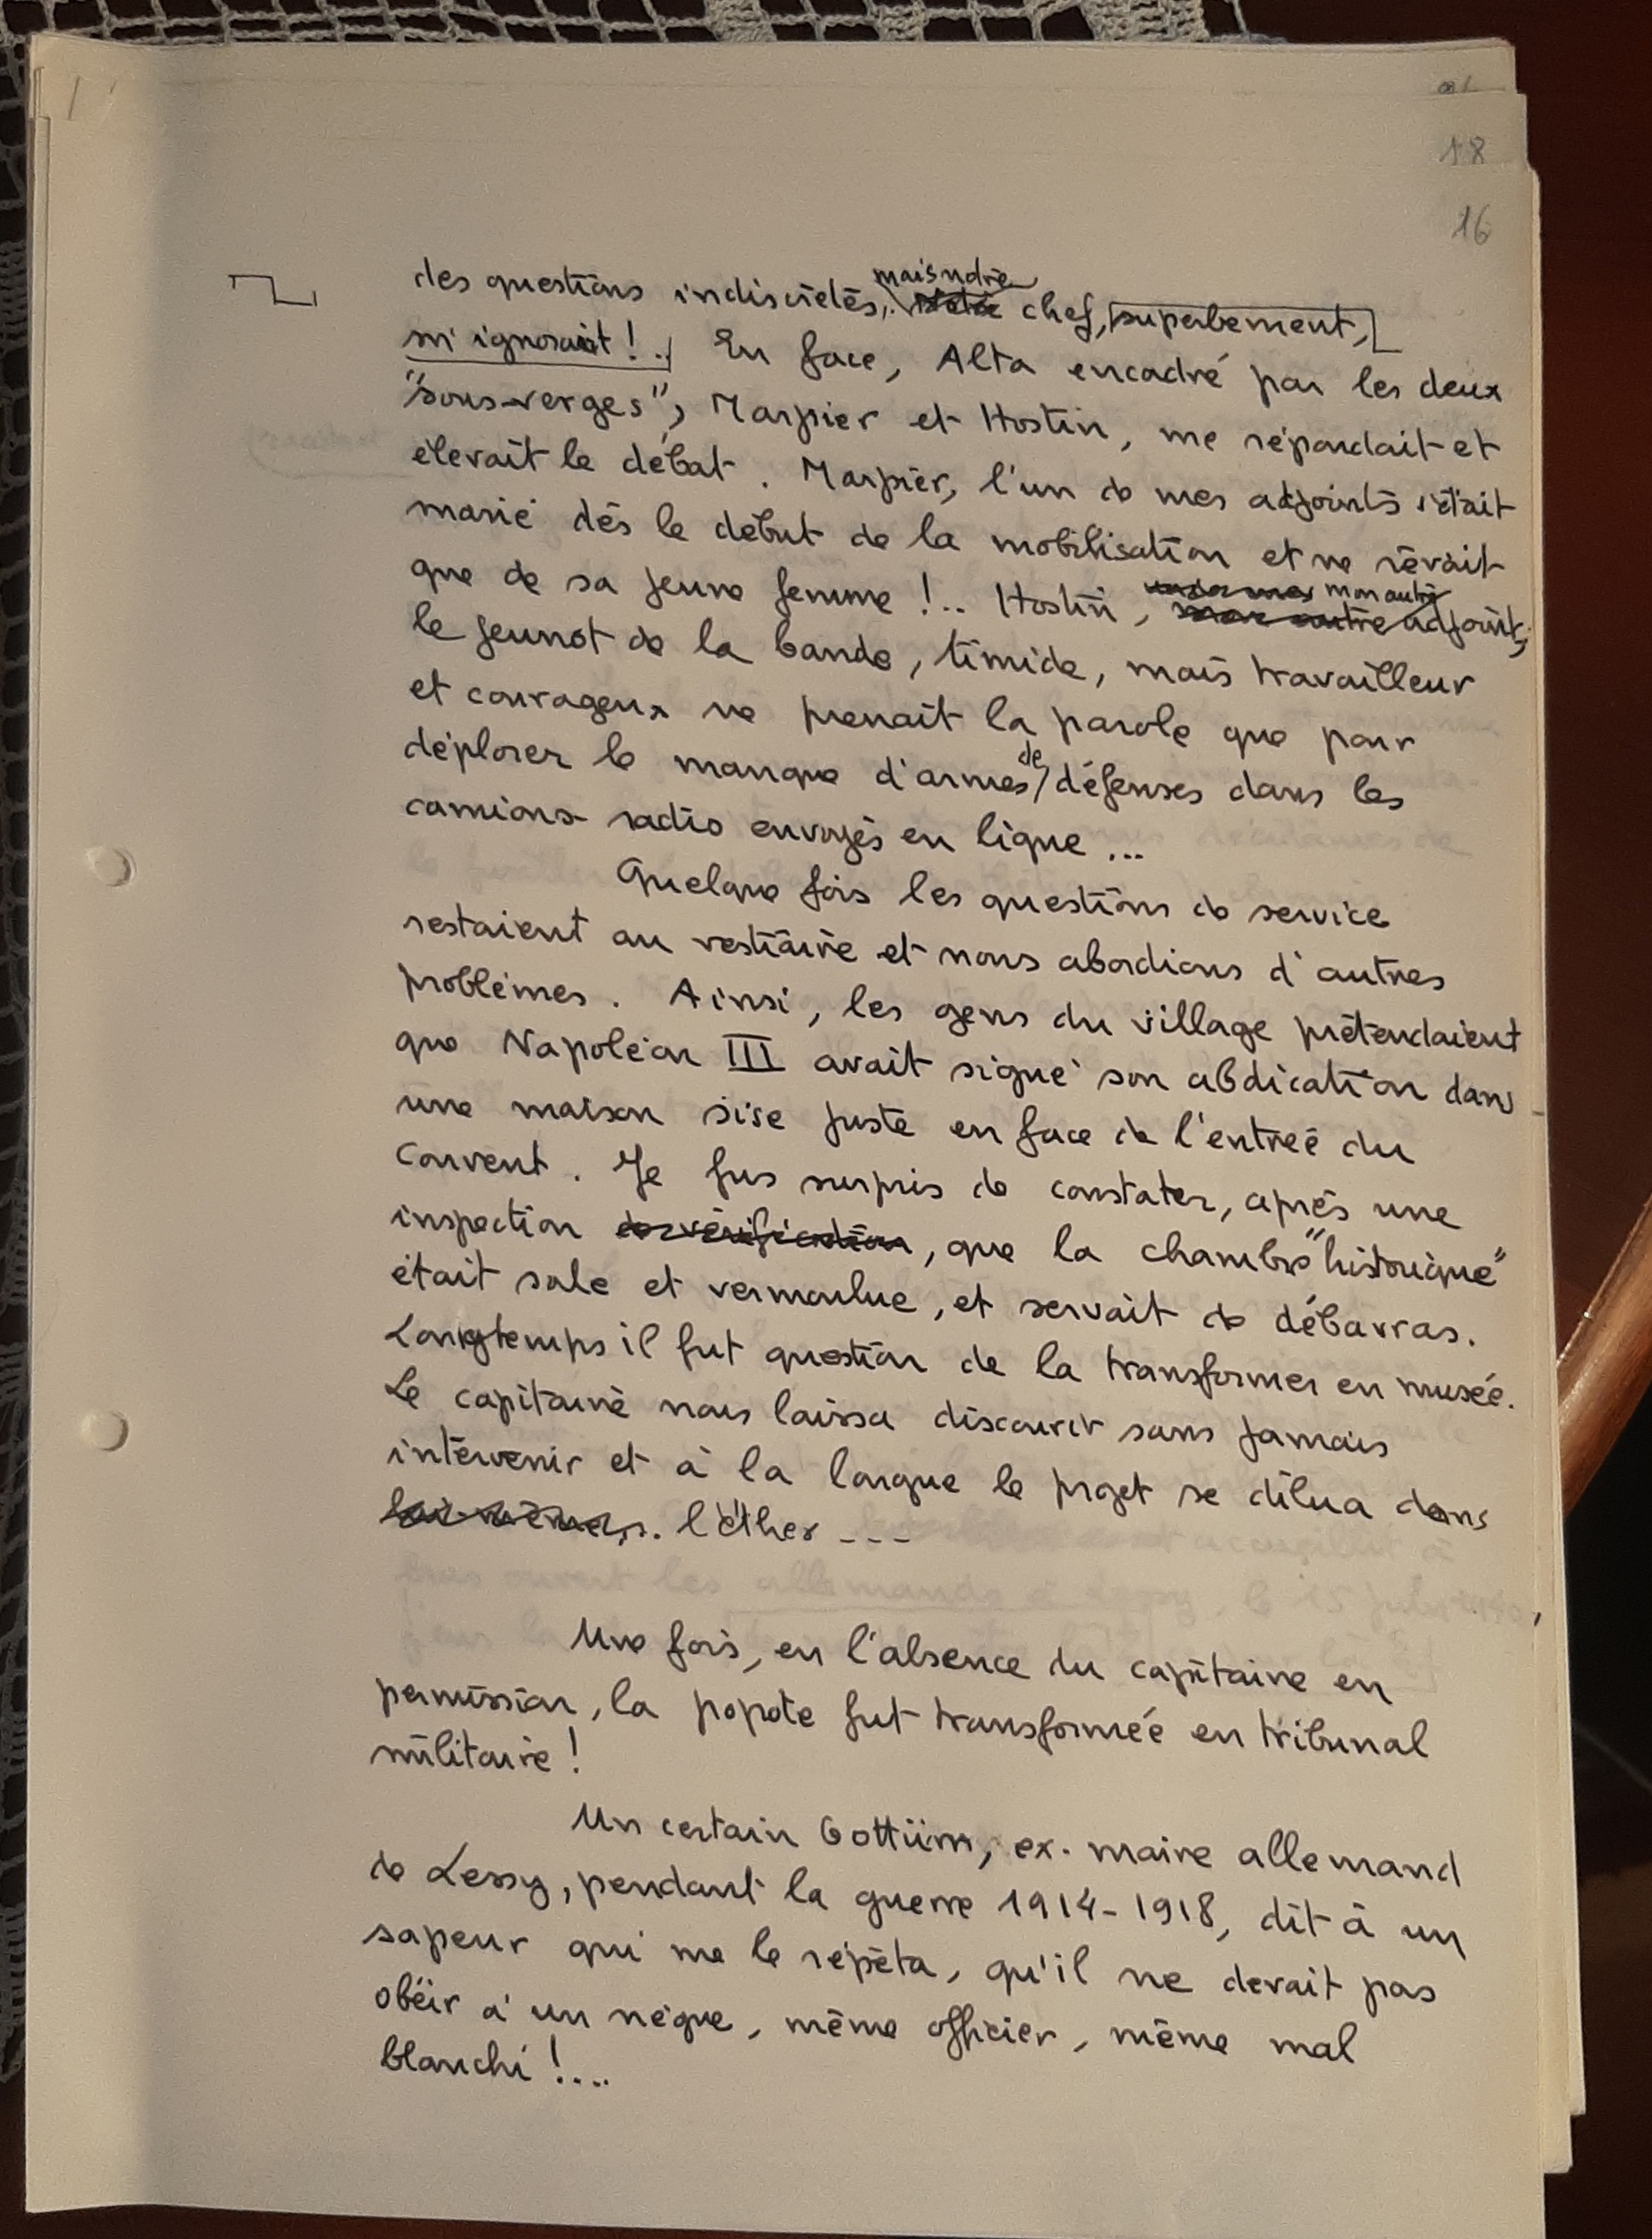 18
16
des questions indiscrètes, mais notre chef, superbement,
m'ignorait ! En face, Alta encadré par les deux
"sous-verges", Marpier et Hostin, me répondait et
élevait le débat. Marpier, l'un de mes adjoints s'était
marié dès le début de la mobilisation et ne rêvait
que de sa jeune femme !.. Hostin, mon autre adjoint,
le jeunot de la bande, timide, mais travailleur
et courageux ne prenait la parole que pour
déplorer le manque d'armes de défenses dans les
camions-radio envoyés en ligne ...
Quelque fois les questions de service
restaient au vestiaire et nous abordions d'autres
problèmes. Ainsi, les gens du village prétendaient
que Napoléon III avait signé son abdication dans
une maison sise juste en face de l'entrée du
couvent. Je fus surpris de constater, après une
inspection de vérification, que la chambre "historique"
était sale et vermoulue, et servait de débarras.
Longtemps il fut question de la transformer en musée.
Le capitaine nous laissa discourir sans jamais
intervenir et à la longue le projet se dilua dans
l'éther ---
Une fois, en l'absence du capitaine en
permission, la popote fut transformée en tribunal
militaire !
Un certain , ex. maire allemand
de Lessy, pendant la guerre 1914-1918, dit à un
sapeur qui me le répéta, qu'il ne devait pas
obéir à un nègre, même officier, même mal
blanchi !....